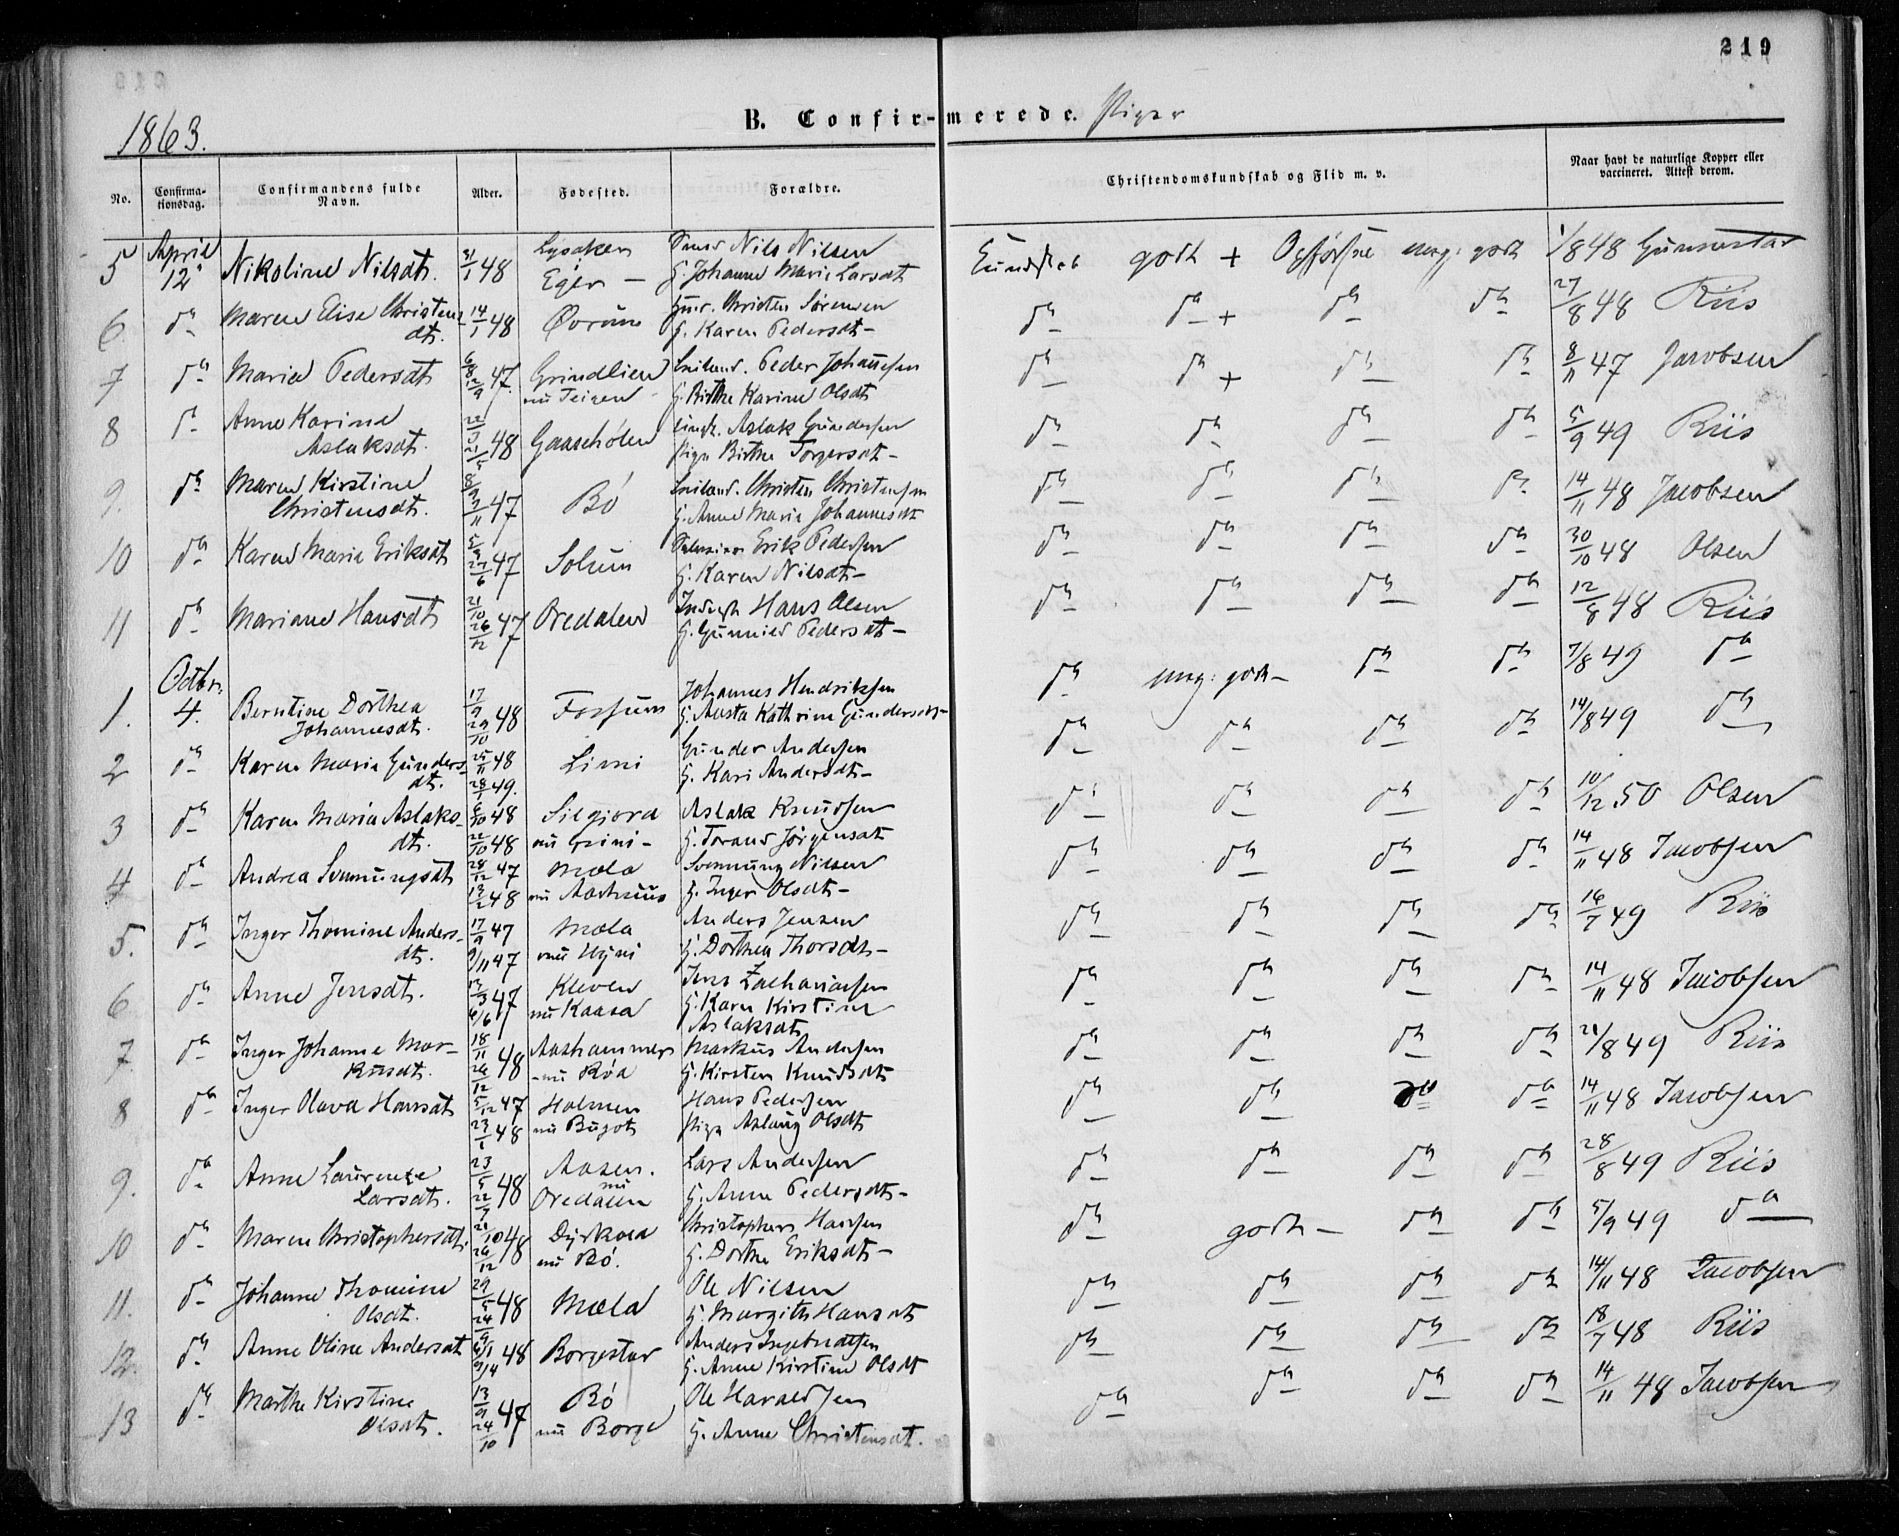 219
1863.
B. Confirmerede. Piger
No.
Confirmationsdag.
Confirmandens fulde Navn.
Alder.
Fødested.
Forældre.
Christendomskundskab og Flid m. v.
Naar havt de naturlige Kopper eller vaccineret. Attest derom.
5 April 12 Nikoline Nilsdt. 31/1 48 Lysaker Eger — Nils Nilsen
H. Johanne Marie Larsdt Kundskab godt + Opførsne meg: godt 1/8 48
6 do Maren Elise Christensdt. 14/1 48 Øvrum Christen Sørensen
H. Karen Pedersdt — do do + do do 27/8 48 Riis
7 do Maria Pedersdt 47 Grindlien nu Teigen Peder Johansen
H. Birthe Karine Olsdt do do + do do 8/11 47 Jacobsen
8 do Anne Karine Aslaksdt. 48 Gaasehølen Aslak Gundersen
Pige Birthe Torgersdt — do do do do 5/9 49 Riis
9. do Maren Kirstine Christensdt. 47 Bö Christen Christensen
H. Anne Maria Johannesdt do do do do 14/11 48 Jacobsen
10 do Karen Maria Eriksdt 47 Solum Erik Pedersen
H. Karen Nilsdt — do do do do 30/10 48 Olsen
11 do Mariane Hansdt 21/10 26/12 47 Oredalen Hans Olsen
H. Gunnild Pedersdt — do do do do 12/8 48 Riis
1. Octbr. 4. Berntine Dorthea Johannesdt. 17/9 29/10 48 Fossum Johannes Hendriksen
H. Aasta Kathrine Gundersdt — do meg: godt — do do 7/8 49 do
2 do Karen Maria Gundersdt. 25/11 48 28/1 49. Limi Gunder Andersen
H. Kari Andersdt — do do do do 14/8 49 do
3 do Karen Maria Aslaksdt. 6/10 48 22/10 48 Silgjord nu Grini — Aslak Knudsen
H. Torand Jörgensdt do do do do 10/12 50 Olsen
4 do Andrea Svennungsdt 28/12 47 13/2 48 Mæla nu Aarhuus Svennung Nilsen
H. Inger Olsdt — do do do do 14/11 48 Jacobsen
5. do Inger Thomine Andersdt. 17/9 47 9/11 47 Mæla nu Anders Jensen
H. Dorthea Thorsdt — do do do do 16/7 49 Riis
6 do Anne Jensdt. 13/3 6/6 47 Kleven nu Kaasa Jens Zachariasen
H. Karen Kirstine
Aslaksdt do do do do 14/11 48 Jacobsen
7 do Inger Johanne Markusdt. 18/11 26/12 48 Aashammer nu Röa Markus Andersen
H. Kirsten Knudsdt do do do do 21/8 49 Riis
8 do Inger Olava Hansdt 5/12 47 23/1 48 Holmen nu Hans Pedersen
Pige Aslaug Olsdt do do do do 14/11 48 Jacobsen
9. do Anne Laurentze Larsdt. 23/5 22/7 48 Aasen. nu Oredalen Lars Andersen
H. Anne Pedersdt — do do do do 28/8 49 Riis
10 do Maren Christophersdt. 21/10 26/12 48 Dyrkoed nu Bö. Christopher Hansen
H. Dorthe Eriksdt — do godt — do do 5/9 49 do
11. do Johanne Thomine Olsdt. 29/5 24/9 48 Mæla Ole Nilsen
H. Margith Hansdt do do do do 14/11 48 Jacobsen
12. do Anne Oline Andersdt 9/4 48 Borgestar Anders Ingebretsen
H. Anne Kirstine Olsdt do do do do 18/7 48 Riis
13 do Marthe Kirstine Olsdt. 13/9 24/10 47 Bö nu Borge Ole Haraldsen
H. Anne Christensdt. do do do do 14/11 48 Jacobsen